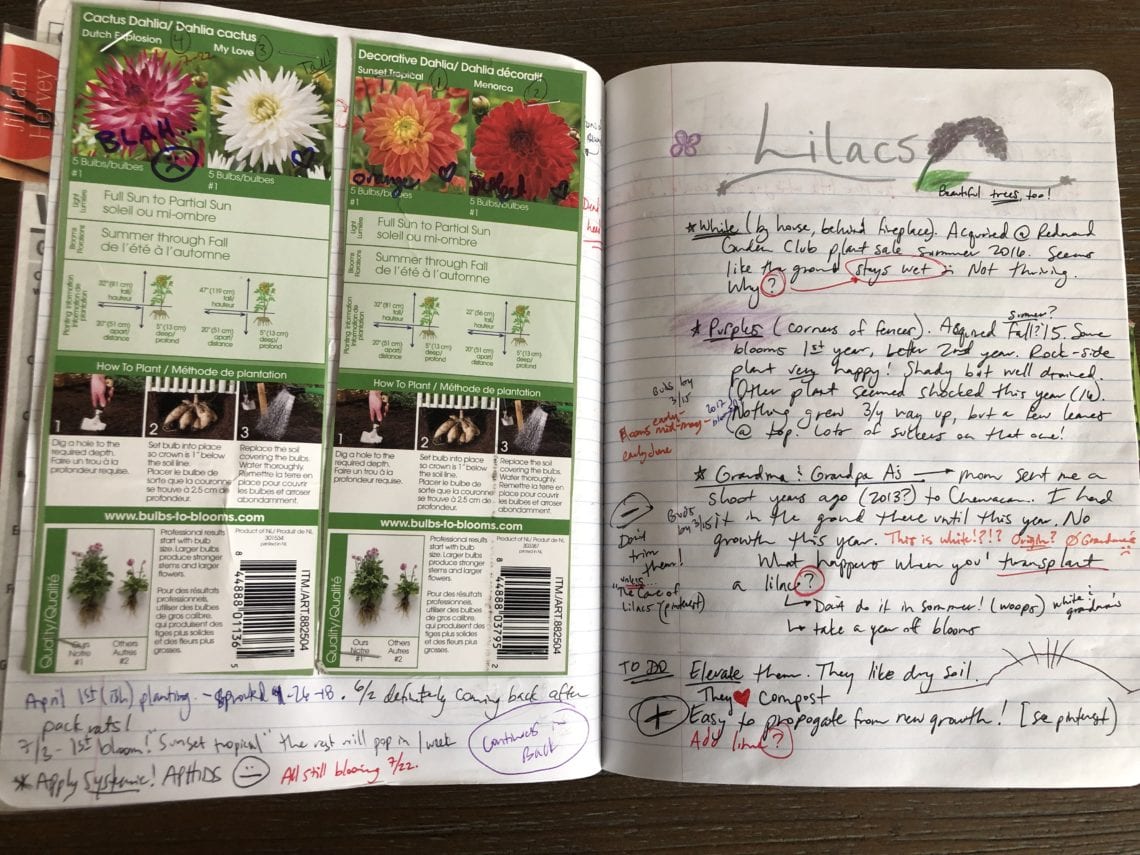 Jillian
Harvey
Cactus Dahlia/ Dahlia cactus
Dutch Explosion
4
My Love
3
7-22
Tall!
BLAH...
5 Bulbs/bulbes
#1
5 Bulbs/bulbes
#1
Light
Lumière
Full Sun to Partial Sun
soleil ou mi-ombre
Blooms
Floraisons
Summer through Fall
de l'été à l'automne
Planting information
Information de
plantation
32" (81 cm)
tall/
hauteur
20" (51 cm)
apart/
distance
5" (13 cm)
deep/
profond
47" (119 cm)
tall/
hauteur
20" (51 cm)
apart/
distance
5" (13 cm)
deep/
profond
How To Plant / Méthode de plantation
1
2
3
Dig a hole to the
required depth.
Faire un trou à la
profondeur requise.
Set bulb into place
so crown is 1" below
the soil line.
Placer le bulbe de
sorte que la couronne
se trouve à 2,5 cm de
profondeur.
Replace the soil
covering the bulbs.
Water thoroughly.
Remettre la terre en
place pour couvrir
les bulbes et arroser
abondamment.
www.bulbs-to-blooms.com
Quality/Qualité
Ours
Notre
#1
Others
Autres
#2
Professional results
start with bulb
size. Larger bulbs
produce stronger
stems and larger
flowers.
Pour des résultats
professionnels,
utiliser des bulbes
de gros calibre,
qui produisent des
tiges plus solides
et des fleurs plus
grosses.
Product of NL/ Produit de NL
301534
printed in NL
ITM/ART.882504
Decorative Dahlia/ Dahlia décoratif
Sunset Tropical
1
Menorca
2
orange
5 Bulbs/bulbes
#1
5 Bulbs/bulbes
#1
Light
Lumière
Full Sun to Partial Sun
soleil ou mi-ombre
Blooms
Floraisons
Summer through Fall
de l'été à l'automne
Planting information
Information de
plantation
32" (81 cm)
tall/
hauteur
20" (51 cm)
apart/
distance
5" (13 cm)
deep/
profond
22" (56 cm)
tall/
hauteur
20" (51 cm)
apart/
distance
5" (13 cm)
deep/
profond
How To Plant / Méthode de plantation
1
2
3
Dig a hole to the
required depth.
Faire un trou à la
profondeur requise.
Set bulb into place
so crown is 1" below
the soil line.
Placer le bulbe de
sorte que la couronne
se trouve à 2,5 cm de
profondeur.
Replace the soil
covering the bulbs.
Water thoroughly.
Remettre la terre en
place pour couvrir
les bulbes et arroser
abondamment.
www.bulbs-to-blooms.com
Quality/Qualité
Ours
Notre
#1
Others
Autres
#2
Professional results
start with bulb
size. Larger bulbs
produce stronger
stems and larger
flowers.
Pour des résultats
professionnels,
utiliser des bulbes
de gros calibre,
qui produisent des
tiges plus solides
et des fleurs plus
grosses.
Product of NL/ Produit de NL
printed in NL
ITM/ART.882504
April 1st (ish) planting - sprouted 4-26-18. 6/2 definitely coming back after
pack rats!
7/3 - 1st bloom! "Sunset tropical" the rest will pop in 1 week
* Apply Systemic! APHIDS
All still blooming 7/22.
Continues in
Back
Lilacs
Beautiful trees too!
* White (by house, behind fireplace). Acquired @ Redmond
Garden Club plant sale summer 2016. Seems
like the ground stays wet. Not thriving.
Why?
* Purples (corners of fences). Acquired Fall? '15. Some
summer?
blooms 1st year, better 2nd year. Rock-side
plant very happy! Shady but well drained.
Other plant seemed shocked this year (16).
Nothing grew 3/4 way up, but a few leaves
@ top. Lots of suckers on that one!
Buds by
3/15
Blooms early-
mid-may-
early june
* Grandma & Grandpa A's → mom sent me a
shoot years ago (2013?) to Chewacan. I had
it in the ground there until this year. No
growth this year. This is white!?!? Origin? Ø Grandma's
What happens when you transplant
a lilac?
↳ Don't do it in summer! (woops)
↳ take a year of blooms
white is
grandma's
Buds
by 3/15
Don't
trim
them!
unless...
"The Care of
Lilacs" (pinterest)
TO DO
Elevate them. They like dry soil.
They ♥ compost
+
Easy to propogate from new growth! [se pinterest)
Add lime?